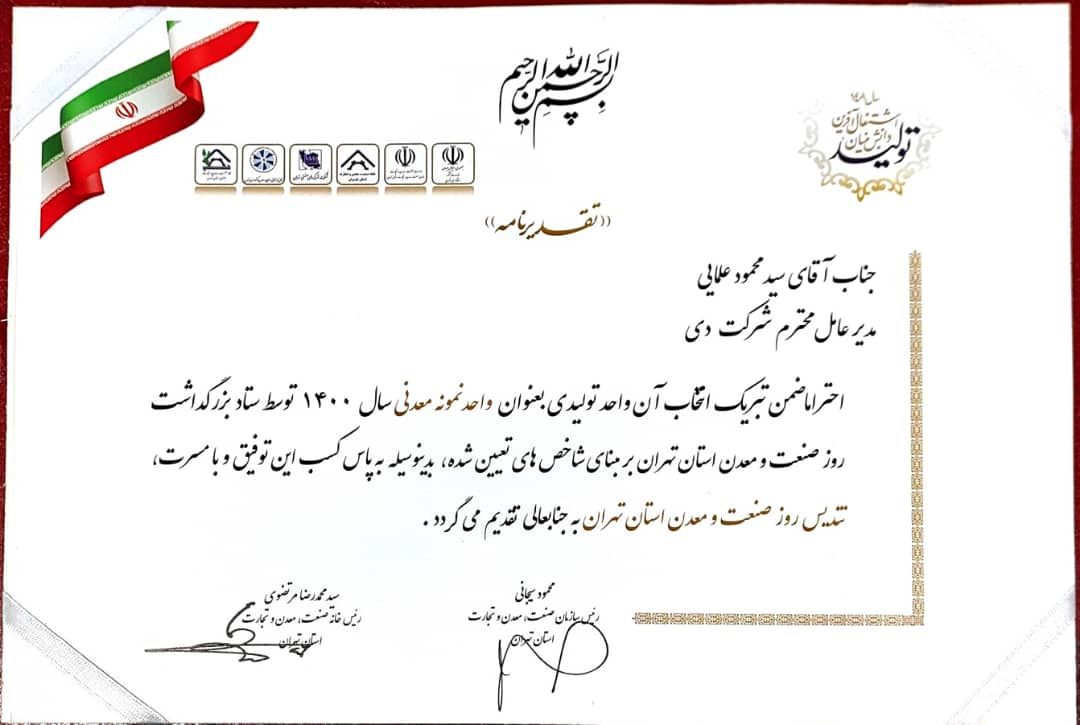 بسم الله الرحمن الرحیم
سال ۱۴۰۱
تولید
دانش بنیان
اشتغال آفرین
((تقدیرنامه))
جناب آقای سید محمود علایی
مدیر عامل محترم شرکت دی
احتراما ضمن تبریک انتخاب آن واحد تولیدی بعنوان واحد نمونه معدنی سال ۱۴۰۰ توسط ستاد بزرگداشت
روز صنعت و معدن استان تهران بر مبنای شاخص های تعیین شده، بدینوسیله به پاس کسب این توفیق و با مسرت،
تندیس روز صنعت و معدن استان تهران به جنابعالی تقدیم می گردد.
محمود سیجانی
رئیس سازمان صنعت، معدن و تجارت
استان تهران
سید محمدرضا مرتضوی
رئیس خانه صنعت، معدن و تجارت
استان تهران